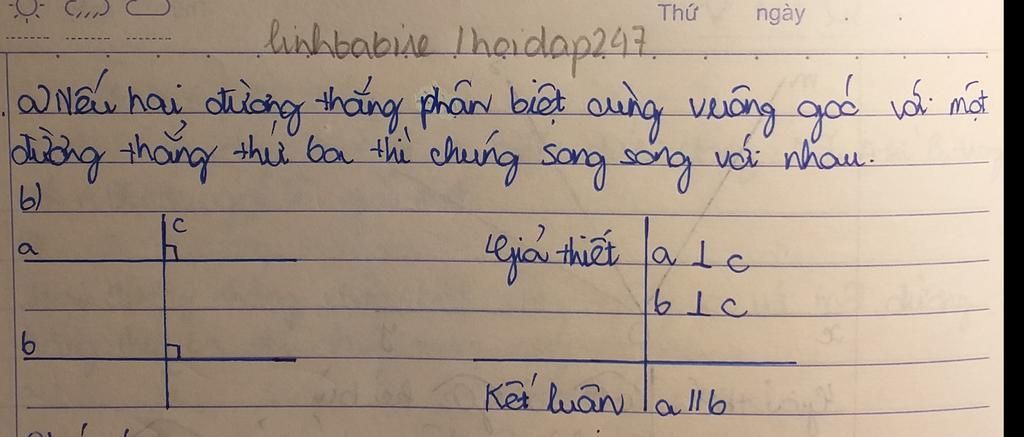 Thứ ngày . .
linhbabine / hoidap247
a) Nếu hai đường thẳng phân biệt cùng vuông góc với một
đường thẳng thứ ba thì chúng song song với nhau.
b)
c
a
b
Giả thiết a ⊥ c
b ⊥ c
Kết luận a // b